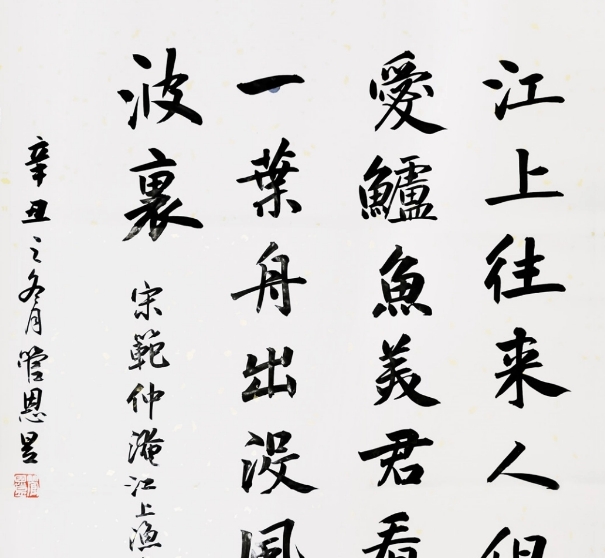 江上往来人但
愛鱸魚美君看
一葉舟出没風
波裏
宋範仲淹江上漁
辛丑之冬月管恩昱